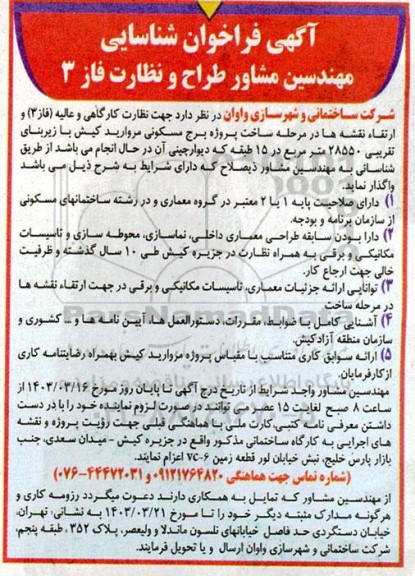 آگهی فراخوان شناسایی
مهندسین مشاور طراح و نظارت فاز ۳
شرکت ساختمانی و شهرسازی واوان در نظر دارد جهت نظارت کارگاهی و عالیه (فاز۳) و
ارتقاء نقشه ها در مرحله ساخت پروژه برج مسکونی مروارید کیش با زیربنای
تقریبی ۲۸۵۵۰ متر مربع در ۱۵ طبقه که دیوارچینی آن در حال انجام می باشد از طریق
شناسائی به مهندسین مشاور ذیصلاح که دارای شرایط به شرح ذیل می باشد
واگذار نماید.
۱) دارای صلاحیت پایه ۱ یا ۲ معتبر در گروه معماری و در رشته ساختمانهای مسکونی
از سازمان برنامه و بودجه.
۲) دارا بودن سابقه طراحی معماری داخلی، نماسازی، محوطه سازی و تاسیسات
مکانیکی و برقی به همراه نظارت در جزیره کیش طی ۱۰ سال گذشته و ظرفیت
خالی جهت ارجاع کار.
۳) توانایی ارائه جزئیات معماری، تاسیسات مکانیکی و برقی در جهت ارتقاء نقشه ها
در مرحله ساخت
۴) آشنایی کامل با ضوابط، مقررات، دستورالعمل ها، آیین نامه ها و ... کشوری و
سازمان منطقه آزاد کیش.
۵) ارائه سوابق کاری متناسب با مقیاس پروژه مروارید کیش بهمراه رضایتنامه کاری
از کارفرمایان.
مهندسین مشاور واجد شرایط از تاریخ درج آگهی تا پایان روز مورخ ۱۴۰۳/۰۳/۱۶ از
ساعت ۸ صبح لغایت ۱۵ عصر می توانند در صورت لزوم نماینده خود را با در دست
داشتن معرفی نامه کتبی، کارت ملی با هماهنگی قبلی جهت رؤیت پروژه و نقشه
های اجرایی به کارگاه ساختمانی مذکور واقع در جزیره کیش - میدان سعدی، جنب
بازار پارس خلیج، نبش خیابان لور قطعه زمین VC-۶ اعزام نمایند.
(شماره تماس جهت هماهنگی ۰۹۱۲۱۷۶۴۸۲۰ و ۴۴۴۷۲۰۳۱-۰۷۶)
از مهندسین مشاور که تمایل به همکاری دارند دعوت میگردد رزومه کاری و
هرگونه مدارک مثبته دیگر خود را تا مورخ ۱۴۰۳/۰۳/۲۱ به نشانی: تهران،
خیابان دستگردی حد فاصل خیابانهای نلسون ماندلا و ولیعصر، پلاک ۳۵۲، طبقه پنجم،
شرکت ساختمانی و شهرسازی واوان ارسال و یا تحویل فرمایند.